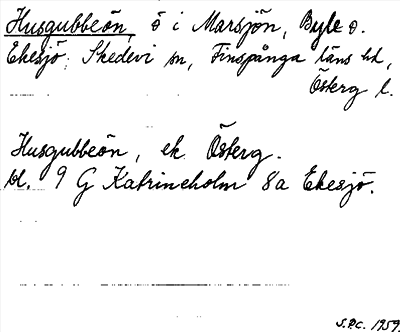 Husgubbeön, ö i Marsjön, Byle o.
Ekesjö, Skedevi sn, Finspånga läns hd,
Österg l.
Husgubbeön, ek Österg.
bl. 9 G Katrineholm 8a Ekesjö.
S.P.C. 1959.